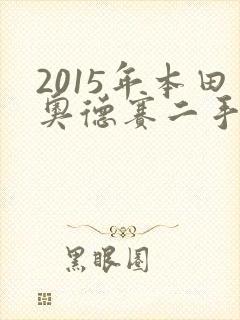 2015年本田
奥德赛二手
黑眼圈